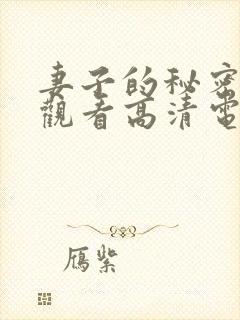 妻子的秘密
觀看高清電
鴈紫